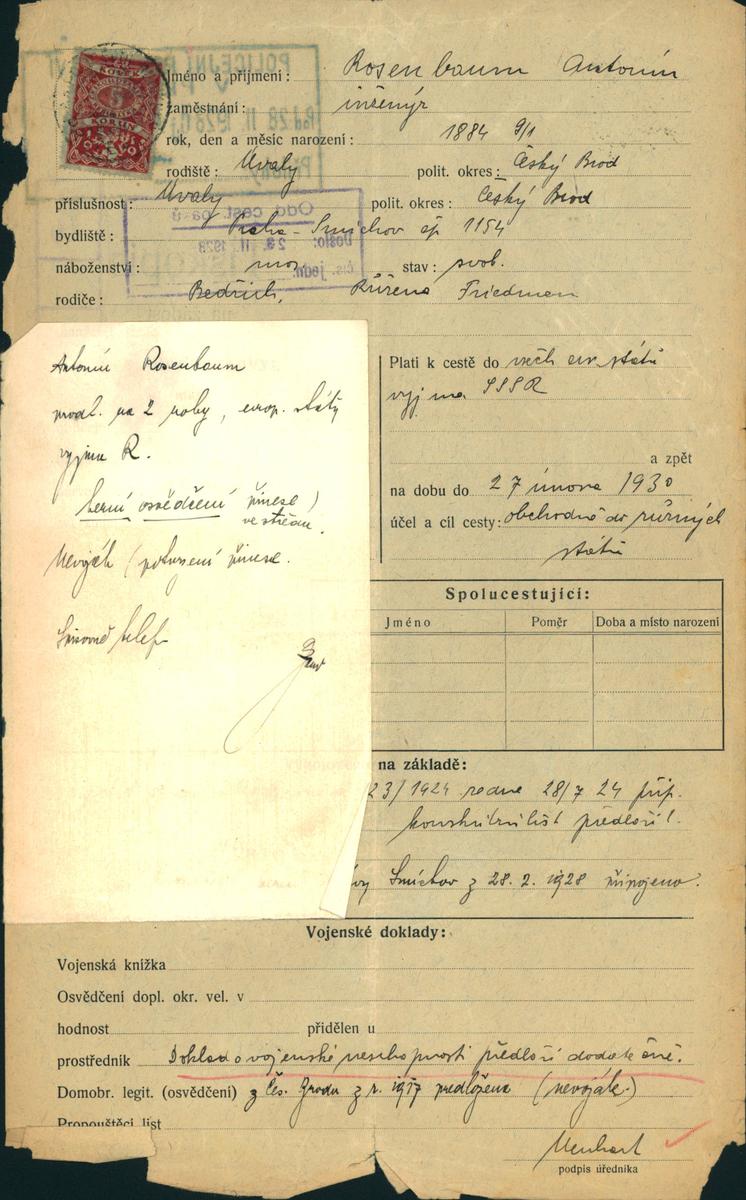 Jméno a příjmení: Rosenbaum Antonín
zaměstnání: inženýr
rok, den a měsíc narození: 1884 9/1
rodiště: Úvaly polit. okres: Český Brod
příslušnost: Úvaly polit. okres: Český Brod
bydliště: Praha-Smíchov čp 1154
náboženství: moj. stav: svob.
rodiče: Bedřich, Růžena Friedman
Antonín Rosenbaum
prodl. na 2 roky, evrop. státy
vyjma R.
berní osvědčení přinese
ve středu.
Nevoják (potvrzení přinese.
Platí k cestě do všech evr. států
vyjma SSSR
a zpět
na dobu do 27 února 1930
účel a cíl cesty: obchodně do různých
států
Spolucestující:
Jméno Poměr Doba a místo narození
na základě:
23/1924 28/7 24
předloží.
Smíchov z 28. 2. 1928 připojeno.
Vojenské doklady:
Vojenská knížka
Osvědčení dopl. okr. vel. v
hodnost přidělen u
prostředník Doklad o vojenské neschopnosti předloží dodatečně.
Domobr. legit. (osvědčení) z Čes. Brodu z r. 1917 předložena (nevoják.)
Propouštěcí list
podpis úředníka